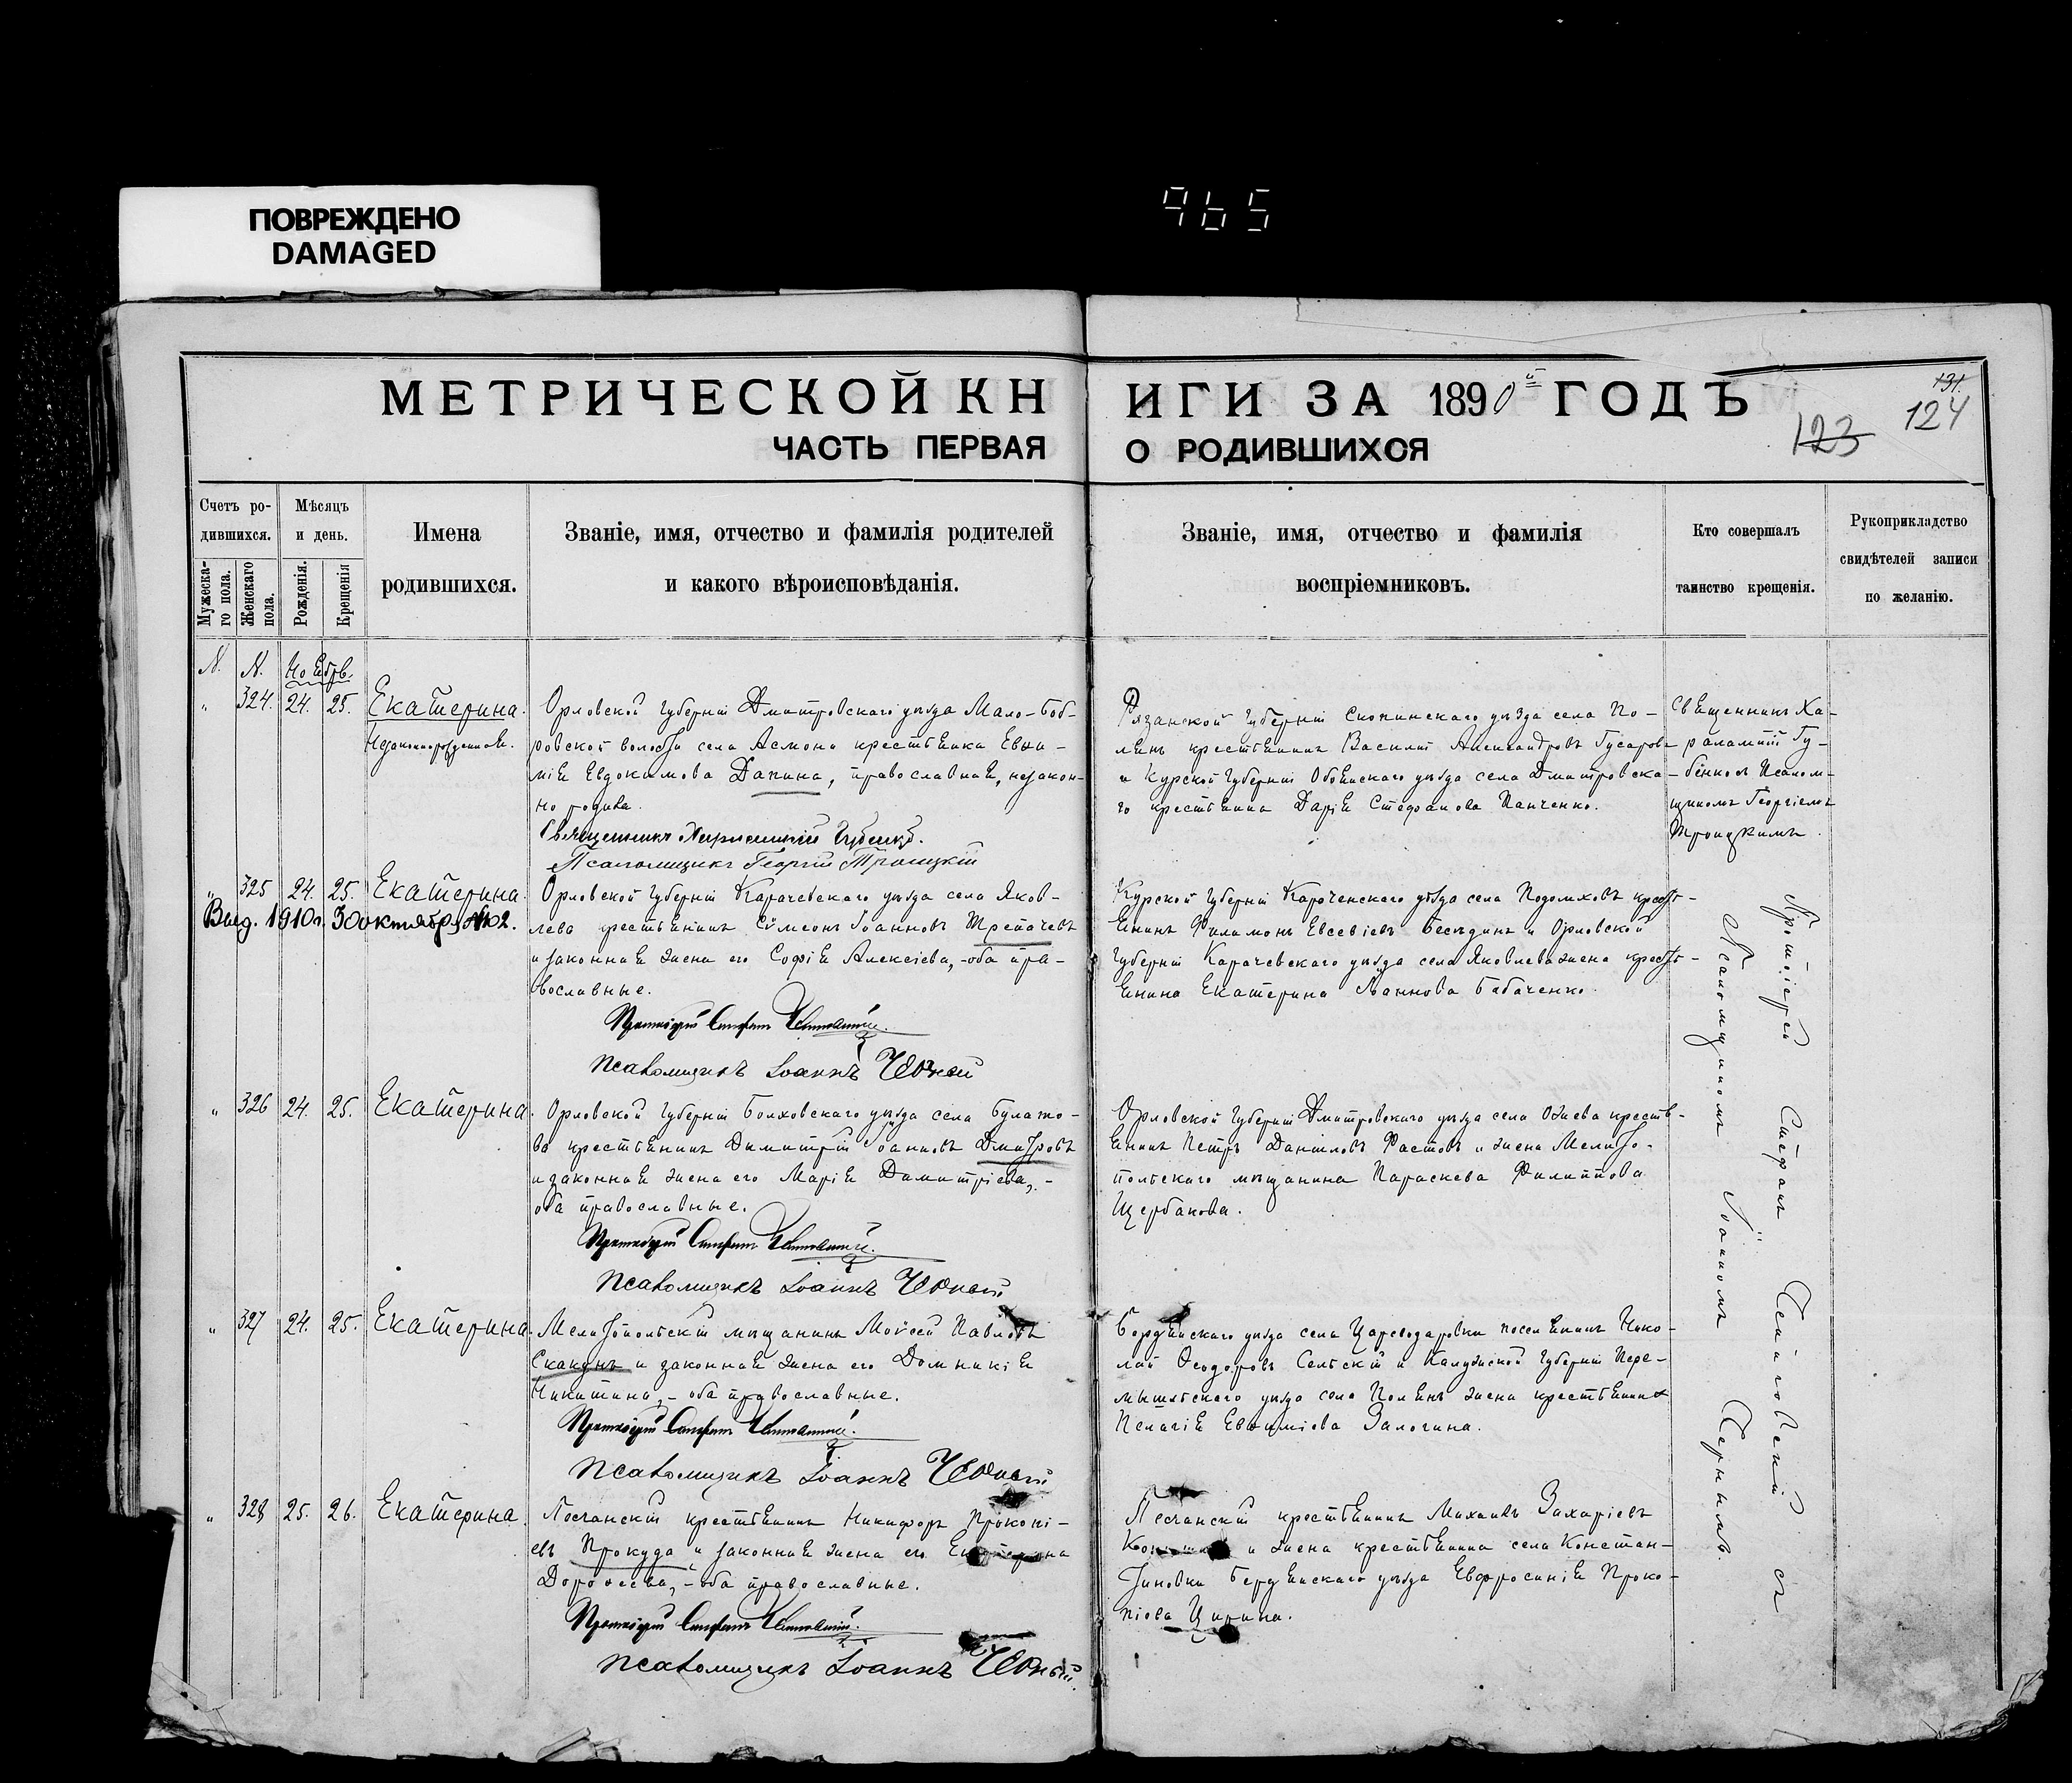 ПОВРЕЖДЕНО
DAMAGED
965
МЕТРИЧЕСКОЙ КНИГИ ЗА 1890й ГОДЪ
131.
123
124
ЧАСТЬ ПЕРВАЯ О РОДИВШИХСЯ
Счетъ ро-
дившихся.
Мужеска-
го пола.
Женскаго
пола.
Мѣсяцъ
и день.
Рожденія.
Крещенія
Имена
родившихся.
Званіе, имя, отчество и фамилія родителей
и какого вѣроисповѣданія.
Званіе, имя, отчество и фамилія
воспріемниковъ.
Кто совершалъ
таинство крещенія.
Рукоприкладство
свидѣтелей записи
по желанію.
N. N. Ноябрь.
" 324. 24. 25. Екатерина.
Незаконнорожденная.
Орловской Губерніи Дмитровскаго уѣзда Мало-Боб-
ровской волости села Асмони крестьянка Евѳи-
мія Евдокимова Дапина, православная, незакон-
но родила.
Священникъ Харалампій Губенко.
Псаломщикъ Георгій Троицкій
Рязанской Губерніи Скопинскаго уѣзда села По-
лянъ крестьянинъ Василій Александровъ Гусаровъ
и Курской Губерніи Обоянскаго уѣзда села Дмитровска-
го крестьянка Дарія Стефанова Панченко.
Священникъ Ха-
рлампій Гу-
бенко съ Псалом-
щикомъ Георгіемъ
Троицкимъ.
" 325 24. 25. Екатерина.
Выд. 1910 г. 30 октября №
Орловской Губерніи Карачевскаго уѣзда села Яков-
лева крестьянинъ Сѵмеонъ Іоанновъ Трепачевъ
и законная жена его Софія Алексіева, - оба пра-
вославные.
Протоіерей Стефанъ
Псаломщикъ Іоаннъ Черный
Курской Губерніи Карочанскаго уѣзда села Подолховъ крест-
янинъ Филимонъ Евсевіевъ Бесѣдинъ и Орловской
Губерніи Карачевскаго уѣзда села Яковлева жена крест-
янина Екатерина Іоаннова Бабаченко.
" 326 24. 25. Екатерина.
Орловской Губерніи Болховскаго уѣзда села Булато-
ва крестьянинъ Димитрій Іоанновъ Дмитровъ
и законная жена его Марія Димитріева, -
оба православные.
Протоіерей Стефанъ
Псаломщикъ Іоаннъ Черный
Орловской Губерніи Дмитровскаго уѣзда села крестья-
янинъ Петръ Даніиловъ Фастовъ и жена Мелито-
польскаго мѣщанина Параскева Филиппова
Щербакова.
" 327 24. 25. Екатерина.
Мелитопольскій мѣщанинъ Моѵсей Павловъ
Скакунъ и законная жена его Домникія
Никитина, - оба православные.
Протоіерей Стефанъ
Псаломщикъ Іоаннъ Черный
Бердянскаго уѣзда села Царедаровки поселянинъ Нико-
лай Ѳеодоровъ Сельскій и Калужской Губерніи Пере-
мышльскаго уѣзда села Полянъ жена крестьянина
Пелагія Евѳиміева Залогина.
" 328 25. 26. Екатерина.
Песчанскій крестьянинъ Никифоръ Прокопі-
евъ Прокуда и законная жена его Екатерина
Дороѳеева, - оба православные.
Протоіерей Стефанъ
Псаломщикъ Іоаннъ Черный
Песчанскій крестьянинъ Михаилъ Захаріевъ
и жена крестьянина села Констан-
тиновки Бердянскаго уѣзда Евфросинія Проко-
піева Цирина.
Протоіерей Стефанъ съ
Псаломщикомъ Іоанномъ Чернымъ.